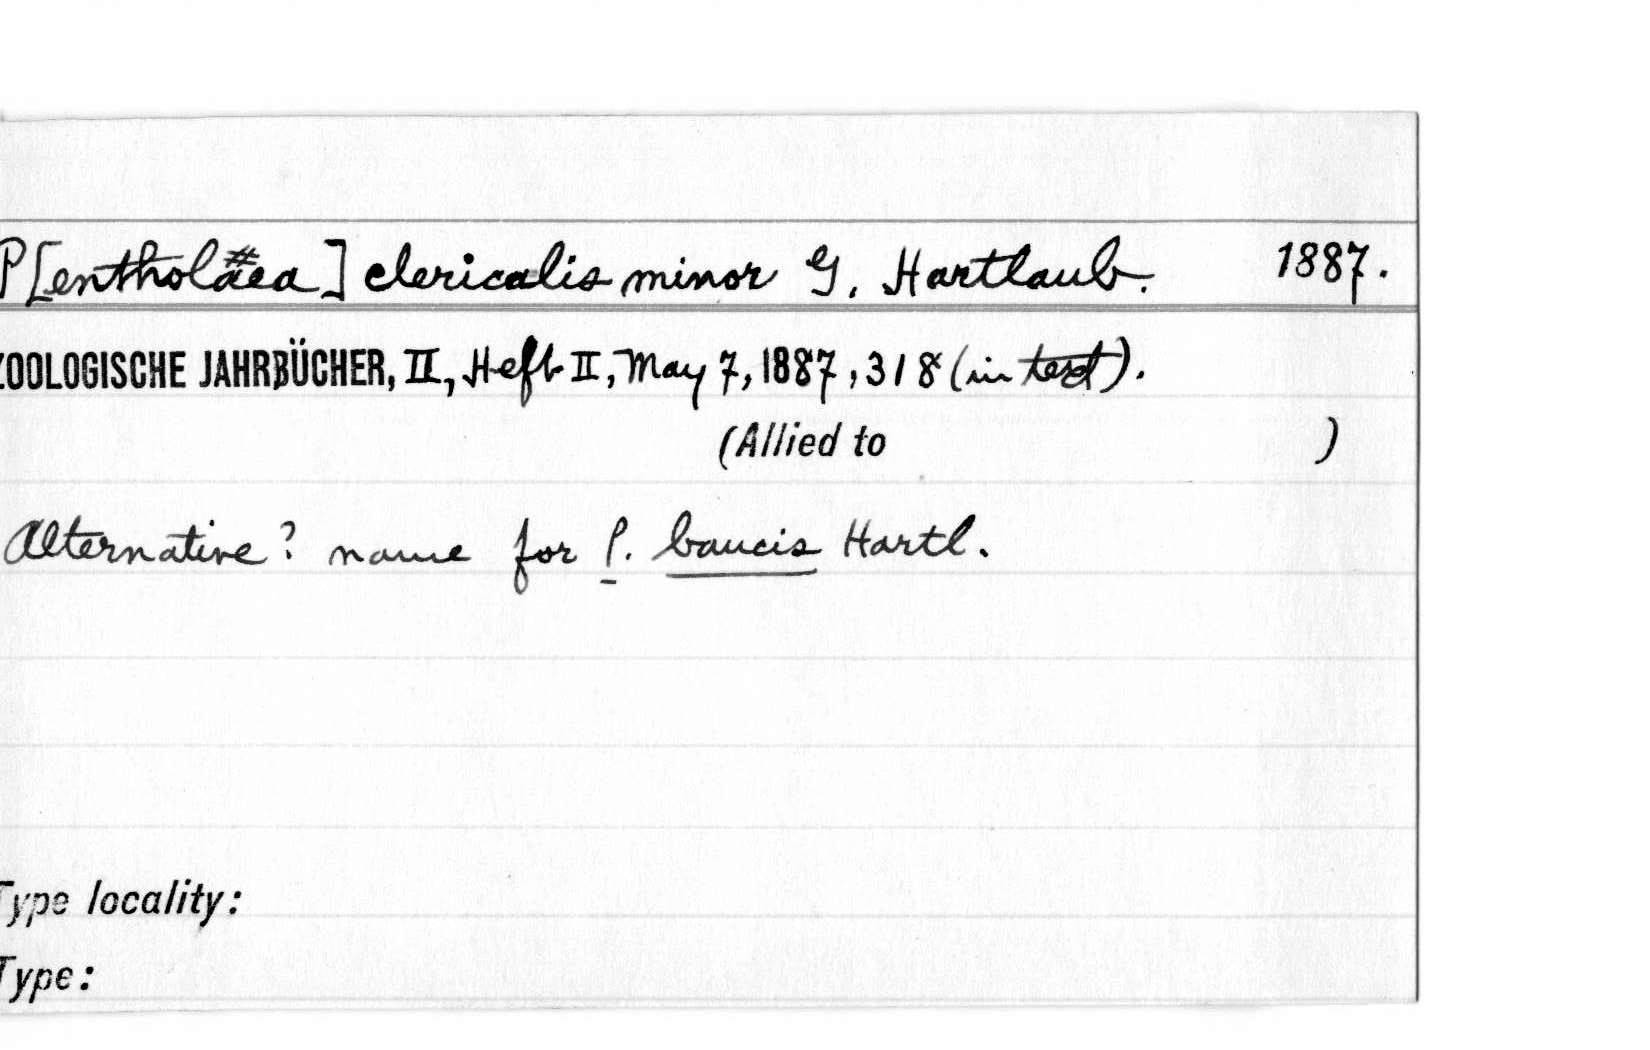 P[entholäea] clericalis minor G. Hartlaub. 1887.
ZOOLOGISCHE JAHRBÜCHER, II, Heft II, May 7, 1887, 318 (in text).
(Allied to )
Alternative? name for P. baucis Hartl.
Type locality:
Type: